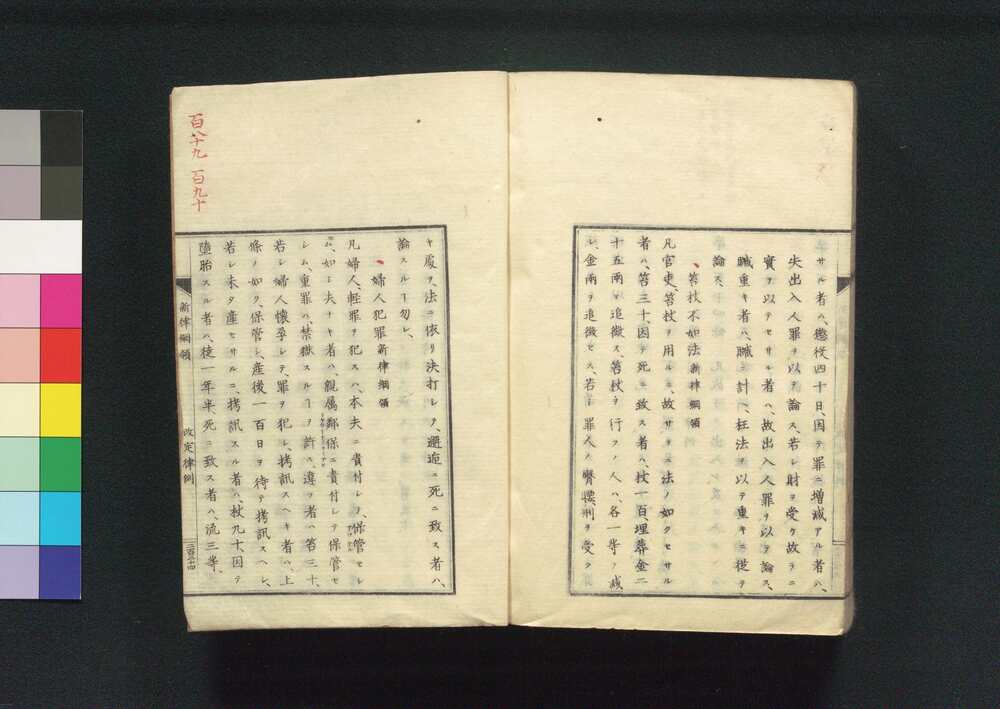 サル者ハ、懲役四十日、因テ罪ニ増減アル者ハ、
失出入人罪ヲ以テ論ス、若シ財ヲ受ケ故ラニ
實ヲ以テセサル者ハ、故出入人罪ヲ以テ論ス、
贓重キ者ハ、贓ニ計ヘ、枉法ヲ以テ重キニ從テ
論ス、
笞杖不如法新律綱領
凡官吏、笞杖ヲ用ルニ、故サラニ法ノ如クセサル
者ハ、笞三十、因テ死ニ致ス者ハ、杖一百、埋葬金二
十五兩ヲ追徴ス、笞杖ヲ行フノ人ハ、各一等ヲ減
シ、金兩ヲ追徴セス、若シ罪人ノ臀腰、刑ヲ受ク
キ處ヲ、法ニ依リ決打シテ、邂逅ニ死ニ致ス者ハ、
論スルヿ勿レ、
婦人犯罪新律綱領
凡婦人、輕罪ヲ犯スハ、本夫ニ責付シテ、保管セシ
ム、如シ夫ナキ者ハ、親屬鄰保ニ責付シテ保管セ
シム、重罪ハ、禁獄スルヿヲ許ス、違フ者ハ、笞三十、
若シ婦人懷孕シテ、罪ヲ犯シ、拷訊スヘキ者ハ、上
條ノ如ク、保管シ、産後一百日ヲ待テ拷訊スヘシ、
若シ未タ産セサルニ、拷訊スル者ハ、杖九十、因テ
墮胎スル者ハ、徒一年半、死ニ致ス者ハ、流三等、
新律綱領
改定律例
二百三十四
百八十九 百九十